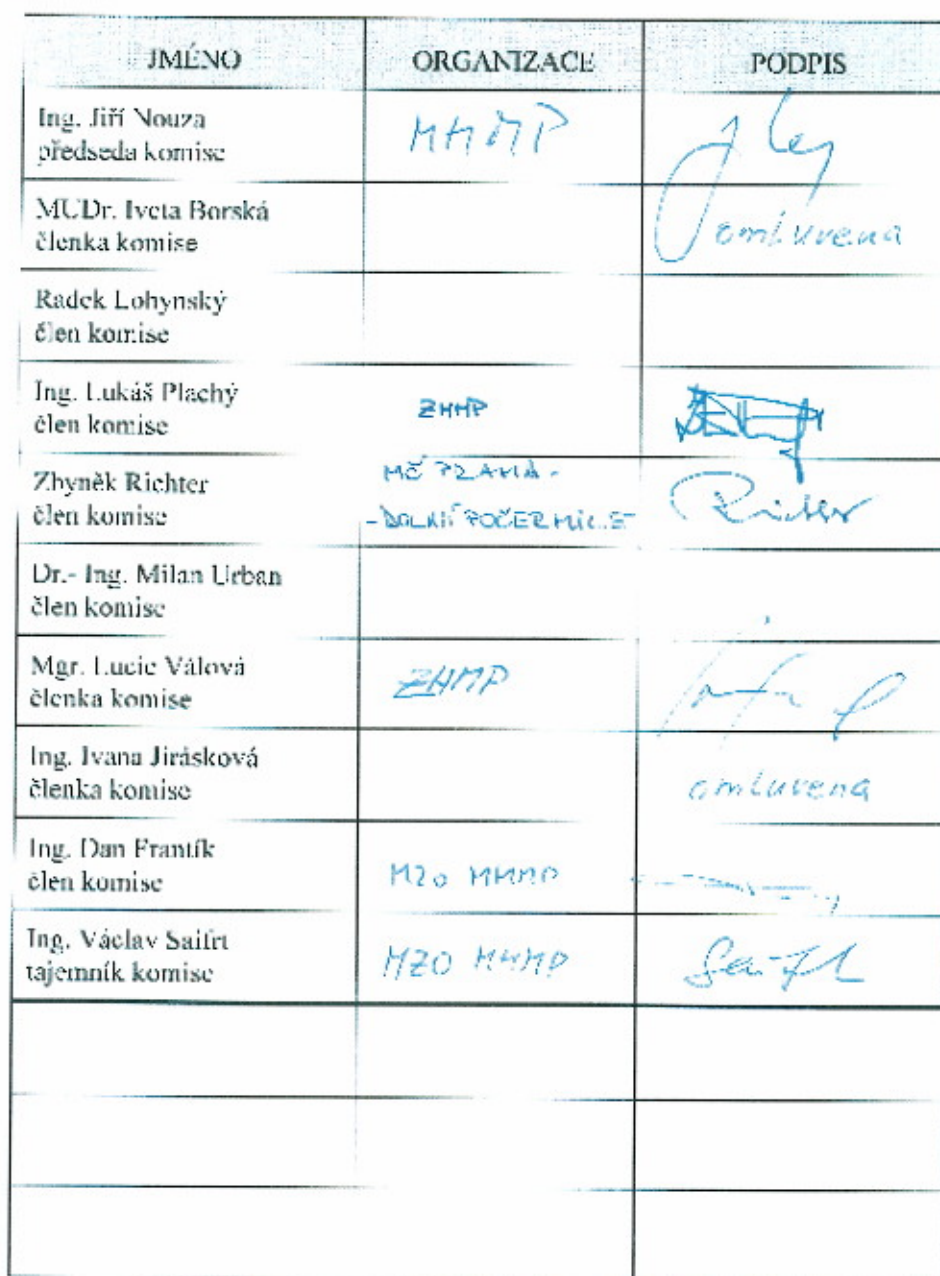 JMÉNO ORGANIZACE PODPIS
Ing. Jiří Nouza MHMP
předseda komise
MUDr. Iveta Borská
členka komise omluvena
Radek Lohynský
člen komise
Ing. Lukáš Plachý
člen komise ZHMP
Zbyněk Richter MČ PRAHA -
člen komise - DOLNÍ POČERNICE Richter
Dr.- Ing. Milan Urban
člen komise
Mgr. Lucie Válová ZHMP
členka komise
Ing. Ivana Jirásková
členka komise omluvena
Ing. Dan Frantík
člen komise MZO MHMP
Ing. Václav Saifrt
tajemník komise MZO MHMP